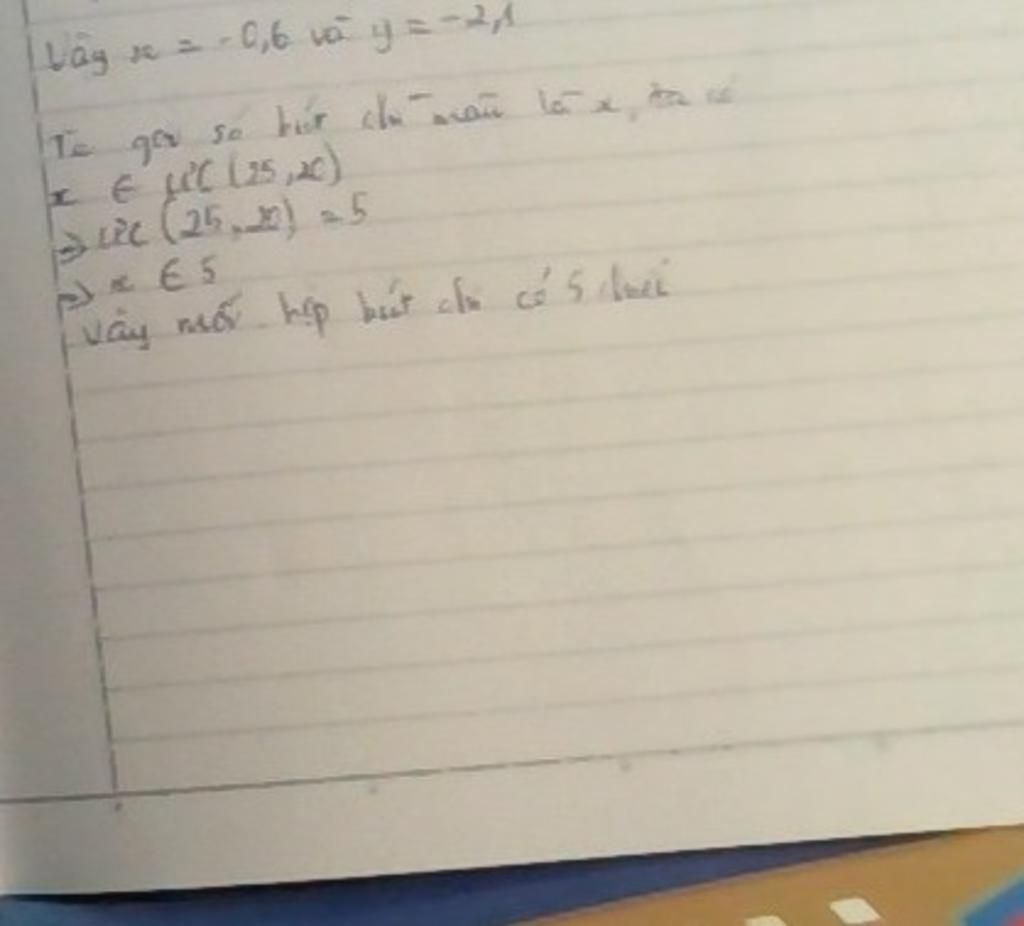 Vậy x = -0,6 và y = -2,1
Ta gọi số bút chì màu là x, ta có
x ∈ ƯC (25, 20)
=> ƯC (25, 20) = 5
=> x ∈ 5
Vậy mỗi hộp bút chì có 5 chiếc